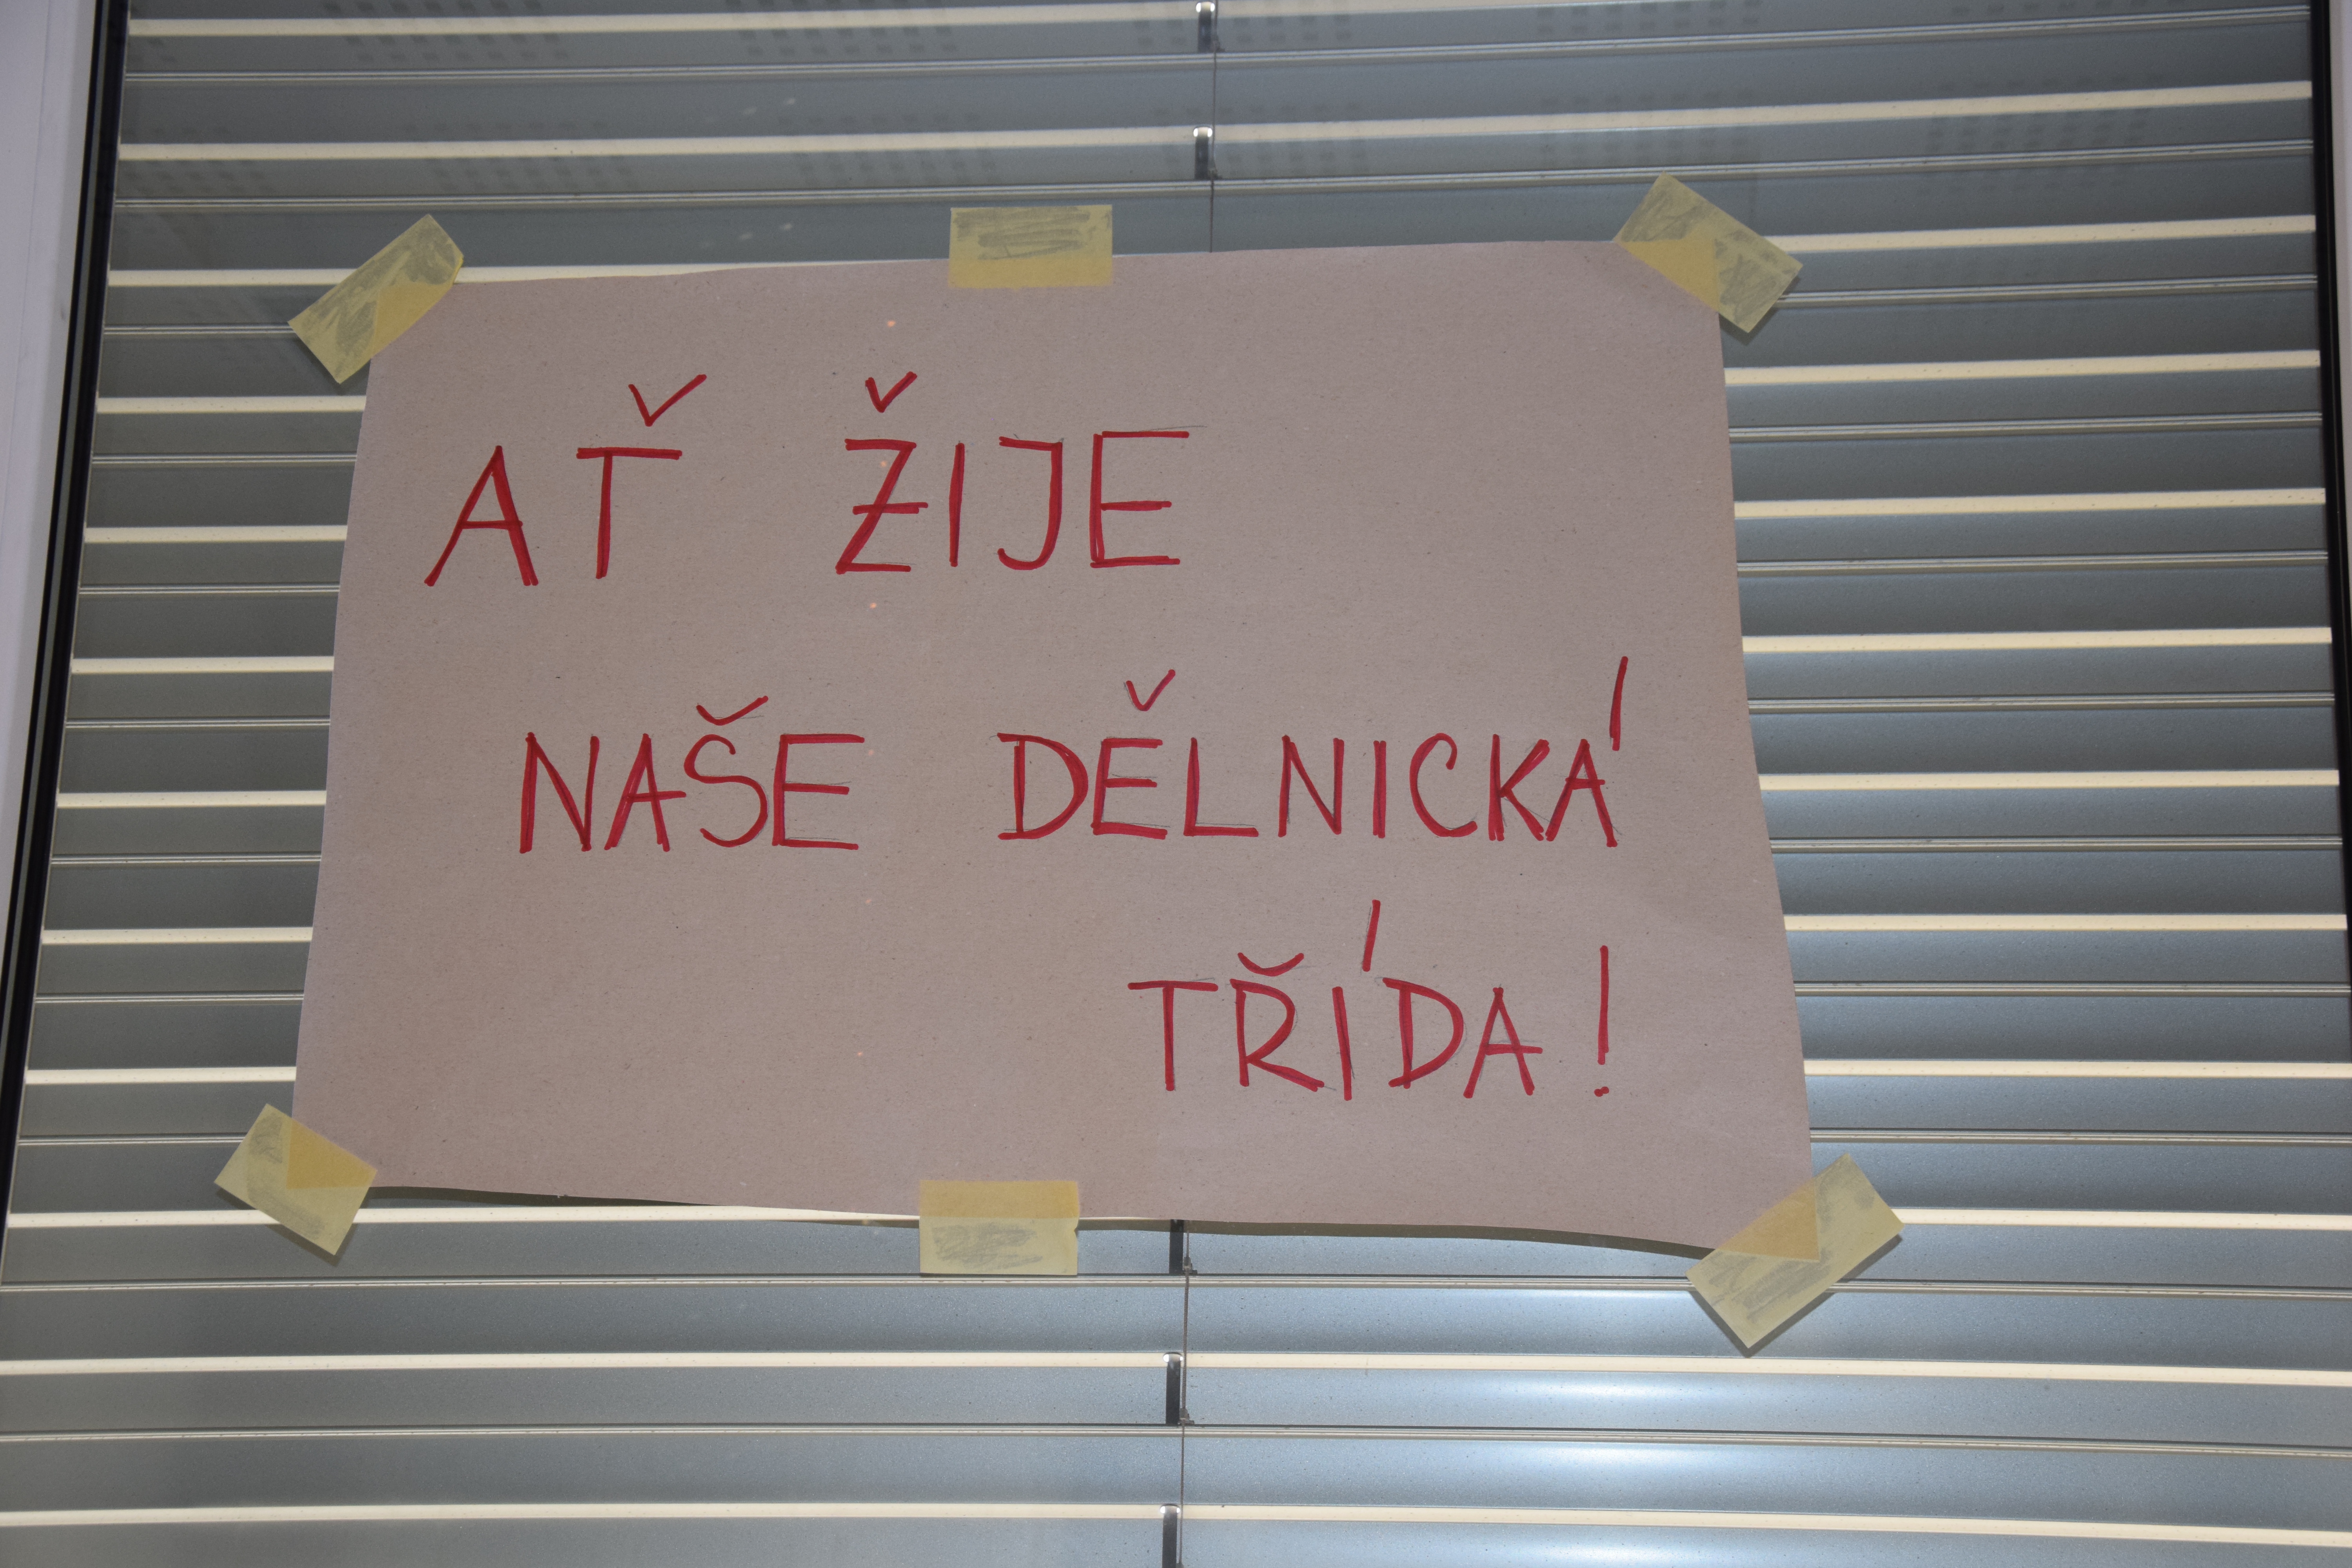 AŤ ŽIJE
NAŠE DĚLNICKÁ
TŘÍDA!